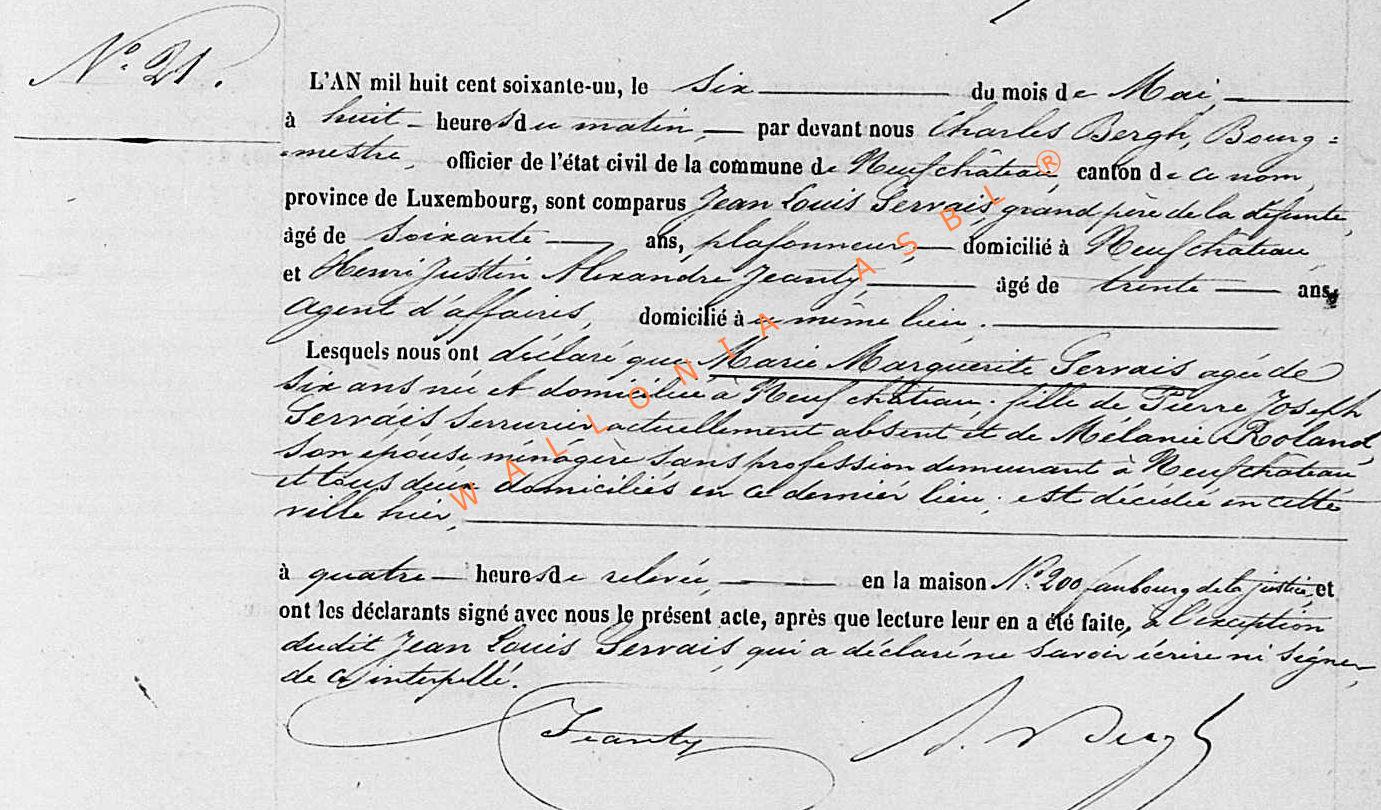 N.° 21.
L'AN mil huit cent soixante-un, le six du mois de Mai,
à huit heures du matin, par devant nous Charles Bergh, Bourg=
=mestre, officier de l'état civil de la commune de Neufchâteau, canton de ce nom,
province de Luxembourg, sont comparus Jean Louis Servais, grand père de la défunte,
âgé de soixante ans, plafonneur, domicilié à Neufchâteau,
et Henri Justin Alexandre Jeanty, âgé de trente ans,
agent d'affaires, domicilié au même lieu.
Lesquels nous ont déclaré que Marie Marguerite Servais agée de
six ans née et domiciliée à Neufchâteau, fille de Pierre Joseph
Servais serrurier actuellement absent et de Mélanie Roland,
son épouse ménagère sans profession demeurant à Neufchâteau
et tous deux domiciliés en ce dernier lieu, est décédée en cette
ville hier,
à quatre heures de relevée, en la maison N.° 200 faubourg de la justice, et
ont les déclarants signé avec nous le présent acte, après que lecture leur en a été faite, à l'exception
dudit Jean Louis Servais, qui a déclaré ne savoir écrire ni signer,
de ce interpellé.
Jeanty Bergh
WALLONIA ASBL ®